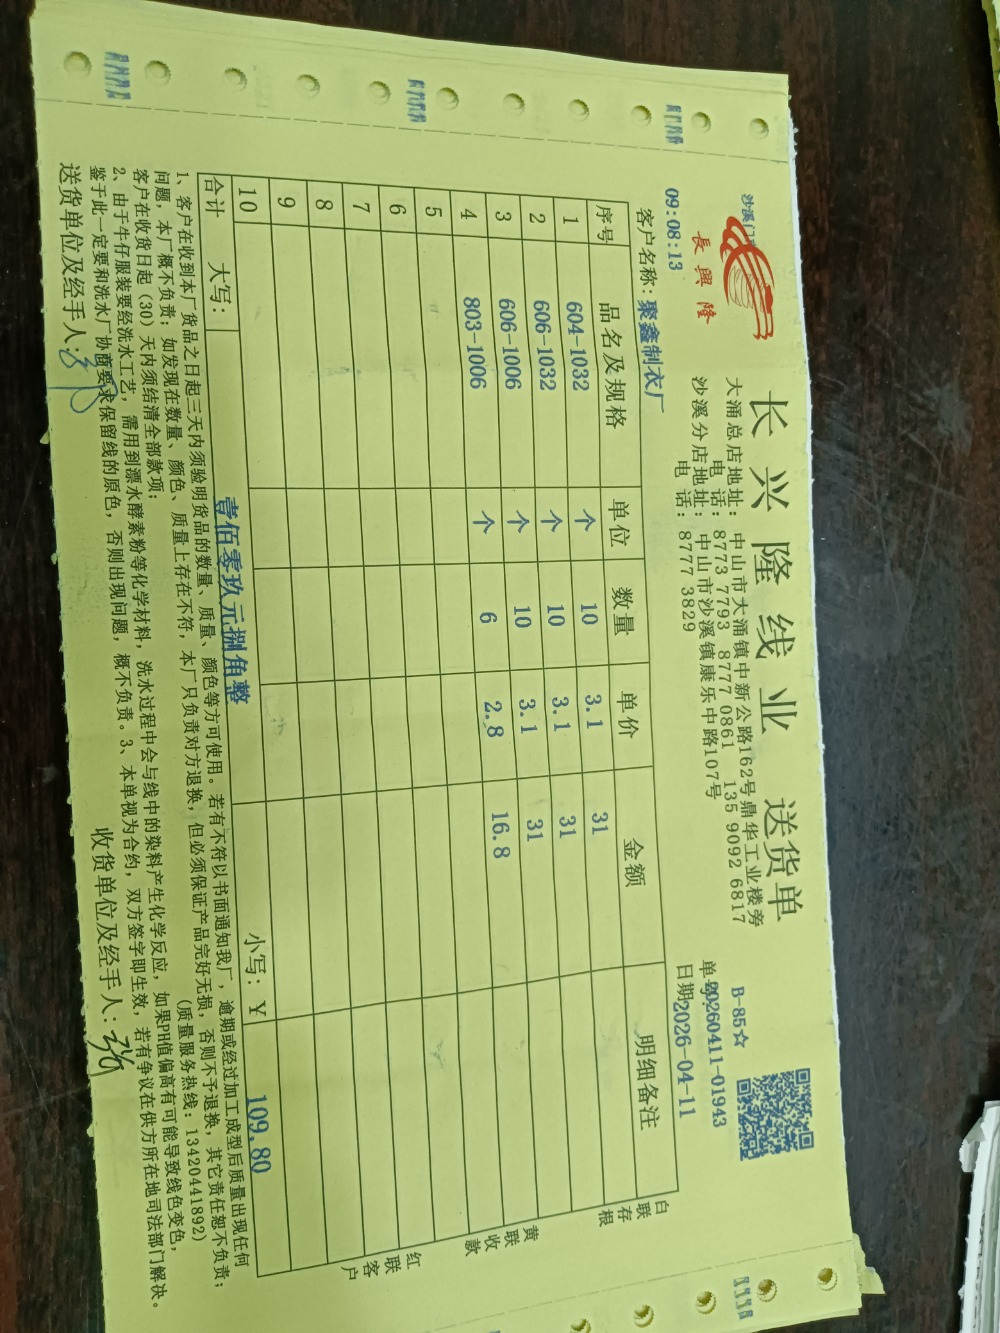 长兴隆线业 送货单
長興隆
大涌总店地址：中山市大涌镇中新公路162号鼎华工业楼旁
电话：8773 7793 8777 0861 135 9092 6817
沙溪分店地址：中山市沙溪镇康乐中路107号
电话：8777 3829
B-85☆
单号:20260411-01943
日期2026-04-11
09:08:13
客户名称：聚鑫制衣厂
序号 品名及规格 单位 数量 单价 金额 明细备注
1 604-1032 个 10 3.1 31
2 606-1032 个 10 3.1 31
3 606-1006 个 10 3.1 31
4 803-1006 个 6 2.8 16.8
5
6
7
8
9
10
合计 大写： 壹佰零玖元捌角整 小写：￥ 109.80
白联存根
黄联收款
红联客户
1、客户在收到本厂货品之日起三天内须验明货品的数量、质量、颜色等方可使用。若有不符以书面通知我厂，逾期或经过加工成型后质量出现任何
问题，本厂概不负责；如发现在数量、颜色、质量上存在不符，本厂只负责对方退换，但必须保证产品完好无损，否则不予退换，其它责任恕不负责；
客户在收货日起（30）天内须结清全部款项； （质量服务热线：13420441892）
2、由于牛仔服装要经洗水工艺，需用到漂水酵素粉等化学材料，洗水过程中会与线中的染料产生化学反应，如果PH值偏高有可能导致线色变色，
鉴于此一定要和洗水厂协商要求保留线的原色，否则出现问题，概不负责。3、本单视为合约，双方签字即生效，若有争议在供方所在地司法部门解决。
送货单位及经手人： 收货单位及经手人：